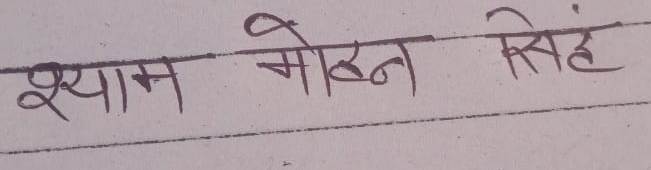 श्याम मोहन सिहं